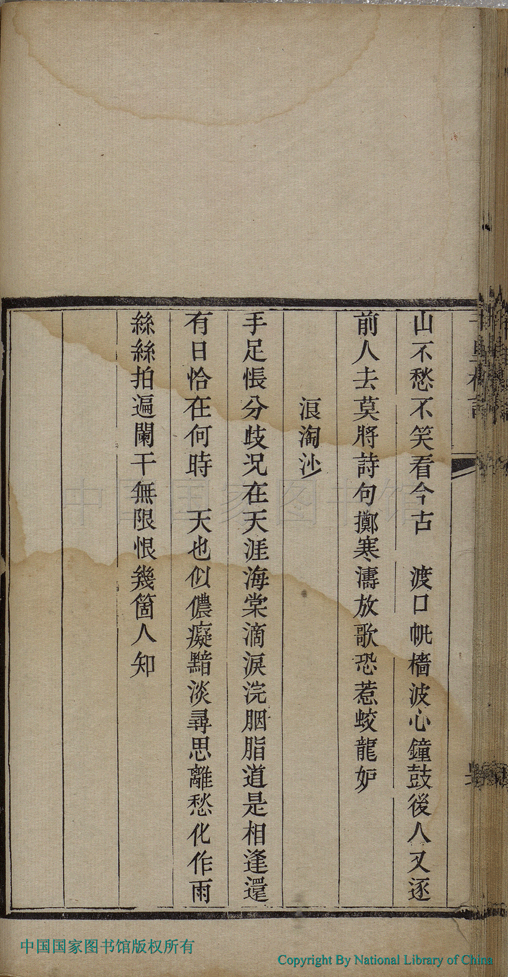 山不愁不笑看今古　渡口帆檣波心鐘鼓後人又逐
前人去莫將詩句擲寒濤放歌恐惹蛟龍妒
浪淘沙
手足悵分歧况在天涯海棠滴淚浣胭脂道是相逢還
有日恰在何時　天也似儂癡黯淡尋思離愁化作雨
絲絲拍遍闌干無限恨幾箇人知
中国国家图书馆
中国国家图书馆版权所有
Copyright By National Library of China